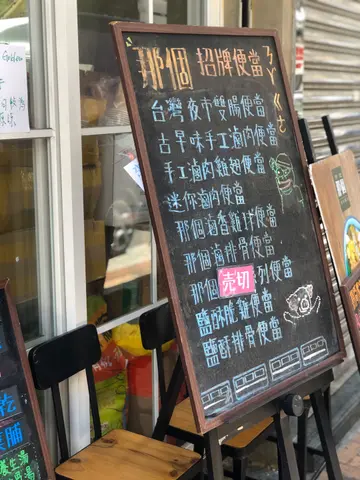 那個 招牌便當
ㄋㄚˋㄍㄜ˙
台灣夜市雙腸便當
古早味手工滷肉便當
手工滷肉雞翅便當
迷你滷肉便當
那個滷香雞球便當
那個滷排骨便當
那個 売切 列便當
鹽酥脆雞便當
鹽酥排骨便當
乾
養生湯
湯